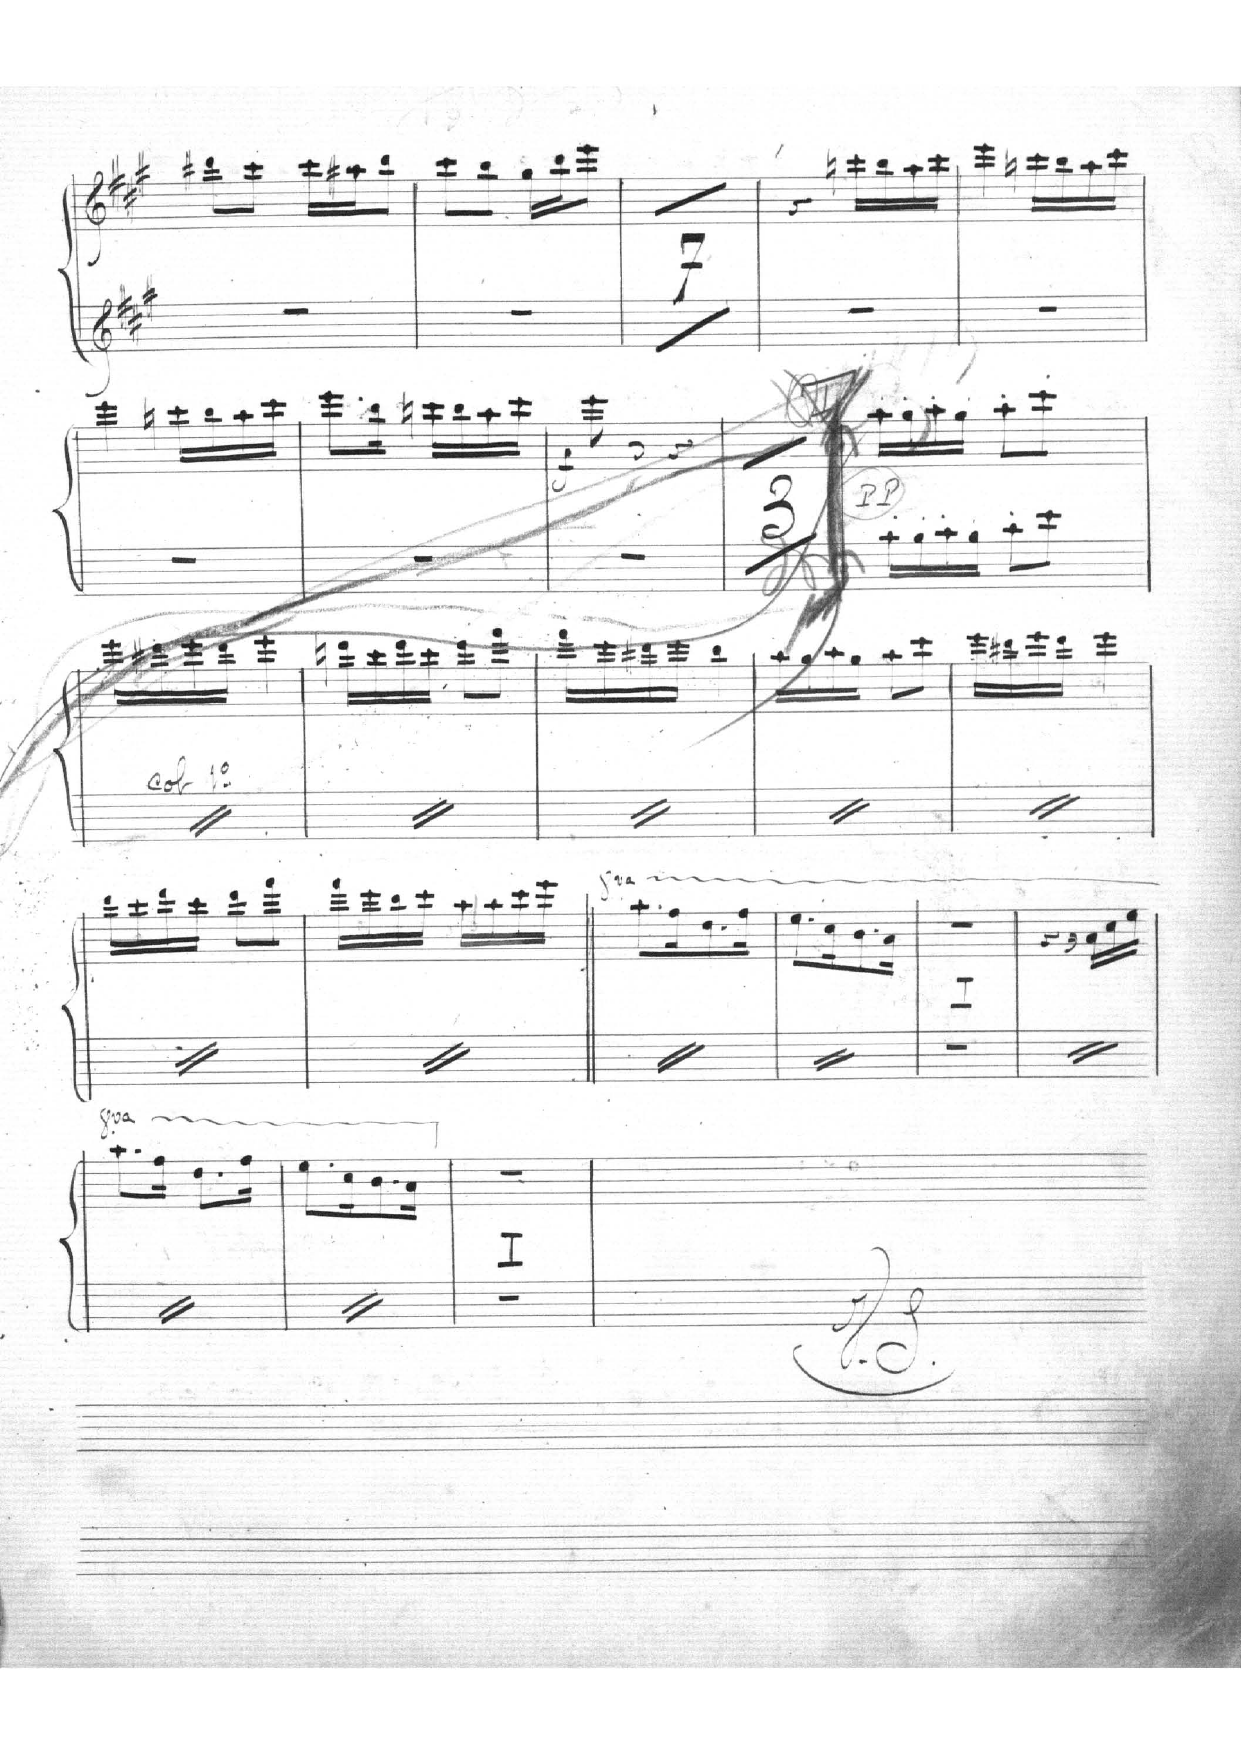 7
3
PP
col 1º
8va
I
8va
I
V.S.